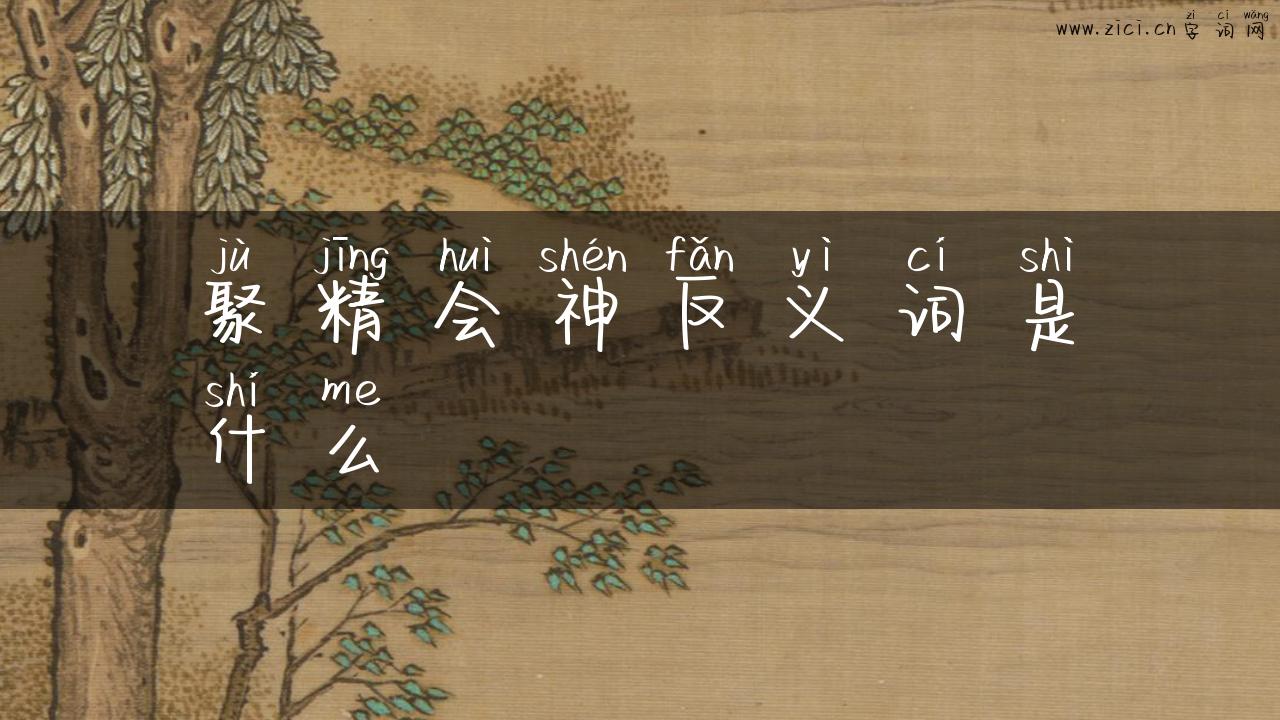 zì cí wǎng
www.zici.cn 字词网
jù jīng huì shén fǎn yì cí shì
聚精会神反义词是
shí me
什么